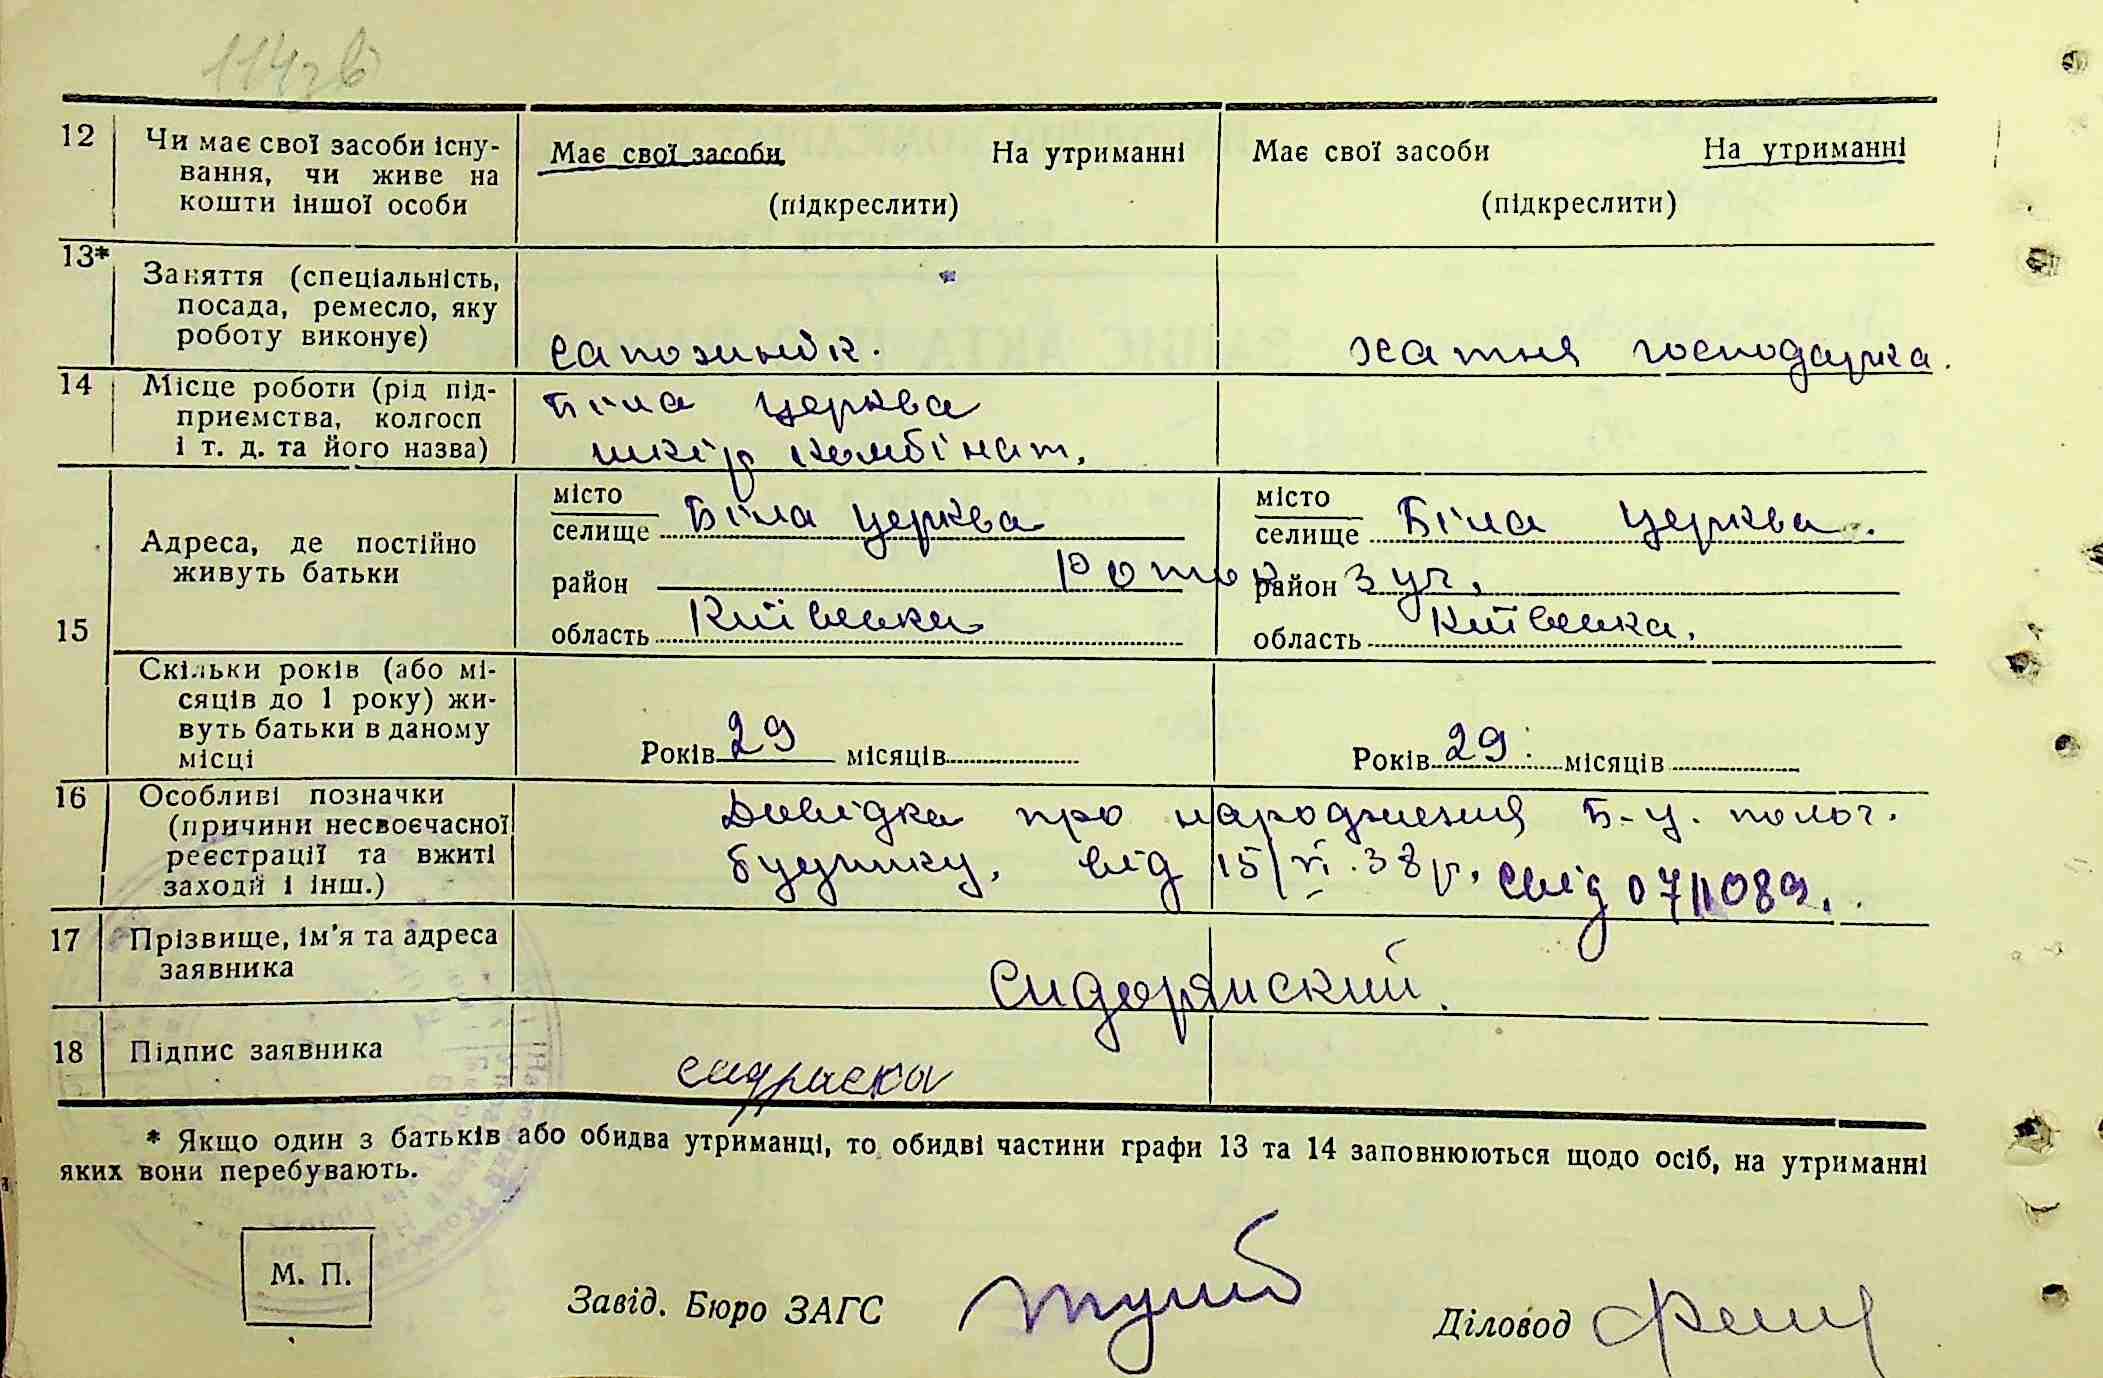 114зв
12 Чи має свої засоби існу-
вання, чи живе на
кошти іншої особи
Має свої засоби На утриманні
(підкреслити)
Має свої засоби На утриманні
(підкреслити)
13* Заняття (спеціальність,
посада, ремесло, яку
роботу виконує)
сапожник.
хатня господарка.
14 Місце роботи (рід під-
приємства, колгосп
і т. д. та його назва)
Біла церква
шкір комбінат.
15
Адреса, де постійно
живуть батьки
місто
селище Біла церква
район Роток 3 уч,
область Київська
місто
селище Біла церква.
район
область Київська.
Скільки років (або мі-
сяців до 1 року) жи-
вуть батьки в даному
місці
Років 29 місяців
Років 29 місяців
16 Особливі позначки
(причини несвоєчасної
реєстрації та вжиті
заходи і інш.)
Довідка про народження Б-ц. полог.
будинку, від 15/VI.38р. свід 0711089.
17 Прізвище, ім'я та адреса
заявника
Сидорянский.
18 Підпис заявника
* Якщо один з батьків або обидва утриманці, то обидві частини графи 13 та 14 заповнюються щодо осіб, на утриманні
яких вони перебувають.
М. П.
Завід. Бюро ЗАГС
Діловод